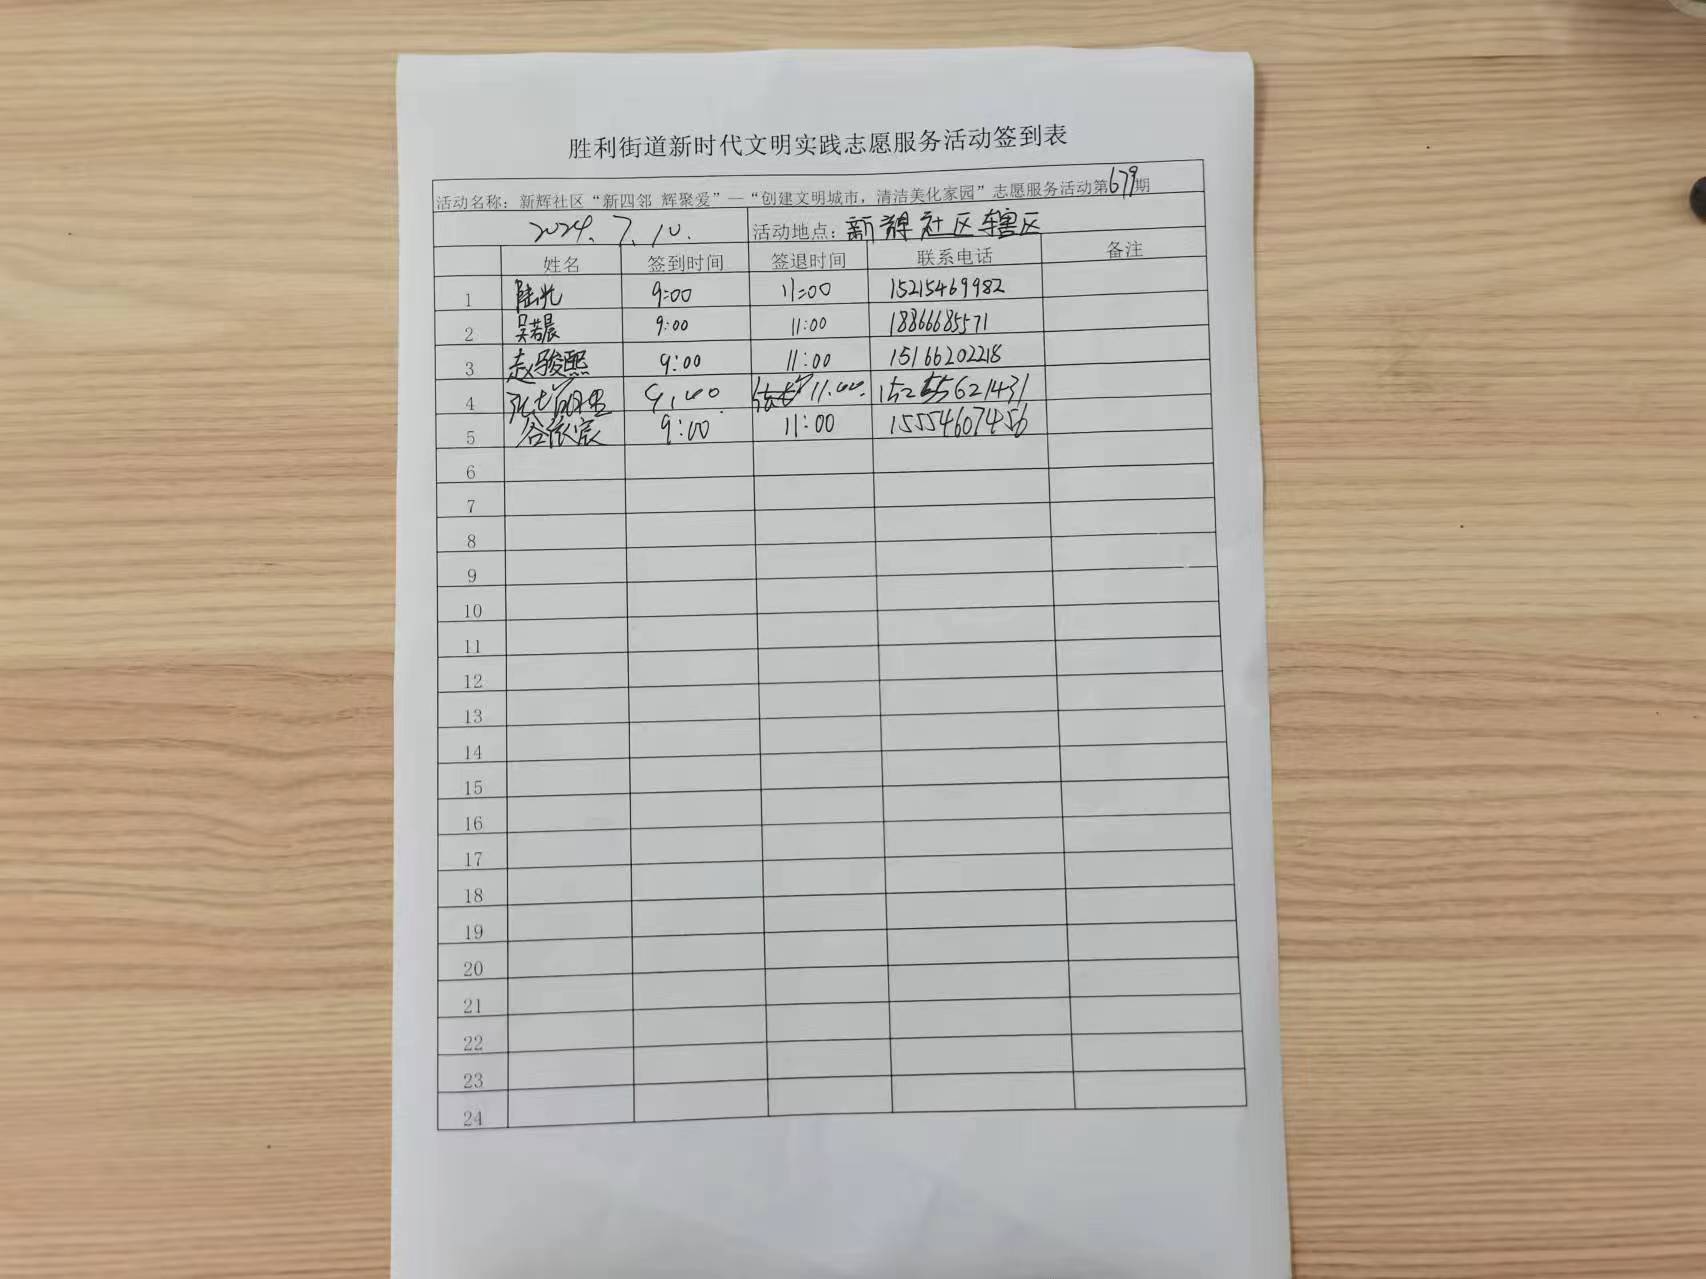 胜利街道新时代文明实践志愿服务活动签到表
活动名称：新辉社区“新四邻 辉聚爱”—“创建文明城市，清洁美化家园”志愿服务活动第679期
2024.7.10. 活动地点：新辉社区辖区
姓名 签到时间 签退时间 联系电话 备注
1 9:00 11:00 15215469982
2 吴若晨 9:00 11:00 18866685571
3 赵骏熙 9:00 11:00 15166202218
4 9:00 11:00
5 谷依宸 9:00 11:00 15554607456
6
7
8
9
10
11
12
13
14
15
16
17
18
19
20
21
22
23
24